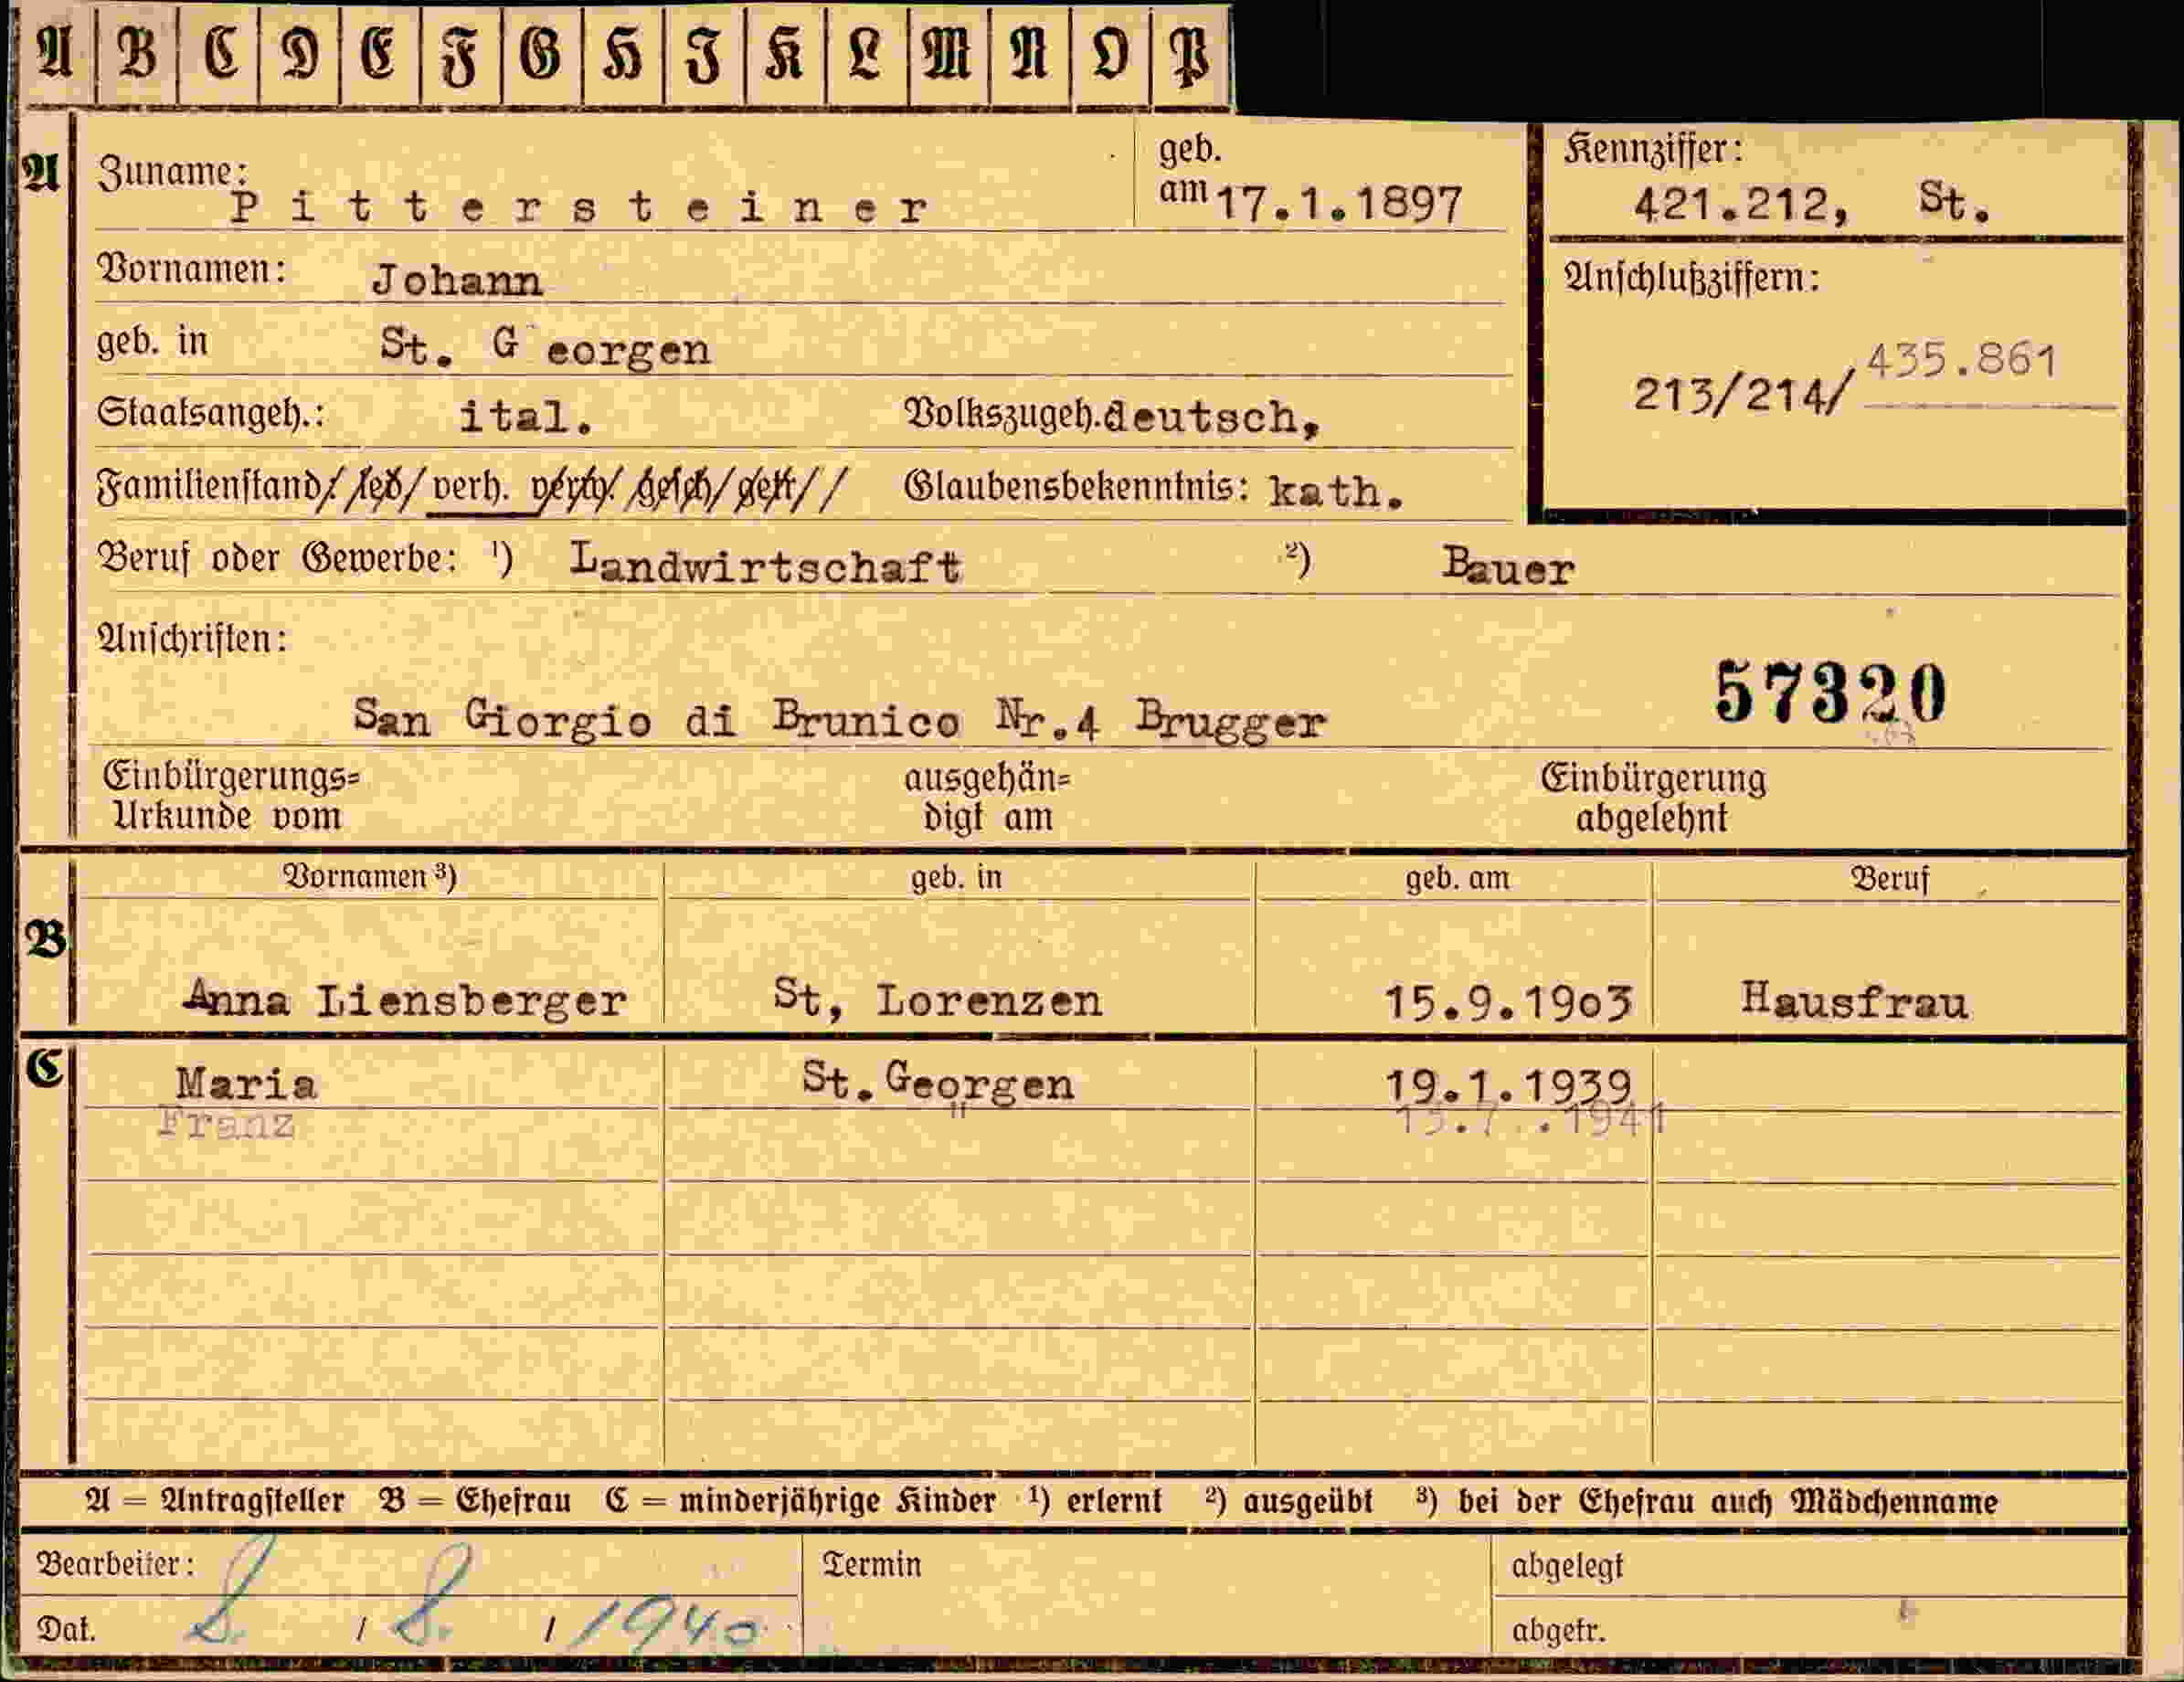 A B C D E F G H J K L M N O P
A Zuname: Pittersteiner geb. am 17.1.1897 Kennziffer: 421.212, St.
Vornamen: Johann Anschlußziffern:
geb. in St. G eorgen 213/214/ 435.861
Staatsangeh.: ital. Volkszugeh. deutsch,
Familienstand: led. verh. verw. gesch. getr. Glaubensbekenntnis: kath.
Beruf oder Gewerbe: ¹) Landwirtschaft ²) Bauer
Anschriften:
57320
San Giorgio di Brunico Nr.4 Brugger
Einbürgerungs= ausgehän= Einbürgerung
Urkunde vom digt am abgelehnt
Vornamen ³) geb. in geb. am Beruf
B
Anna Liensberger St, Lorenzen 15.9.1903 Hausfrau
C Maria St.Georgen 19.1.1939
Franz " .1941
A = Antragsteller B = Ehefrau C = minderjährige Kinder ¹) erlernt ²) ausgeübt ³) bei der Ehefrau auch Mädchenname
Bearbeiter: Termin abgelegt
Dat. 8. / 8. / 1940 abgetr.